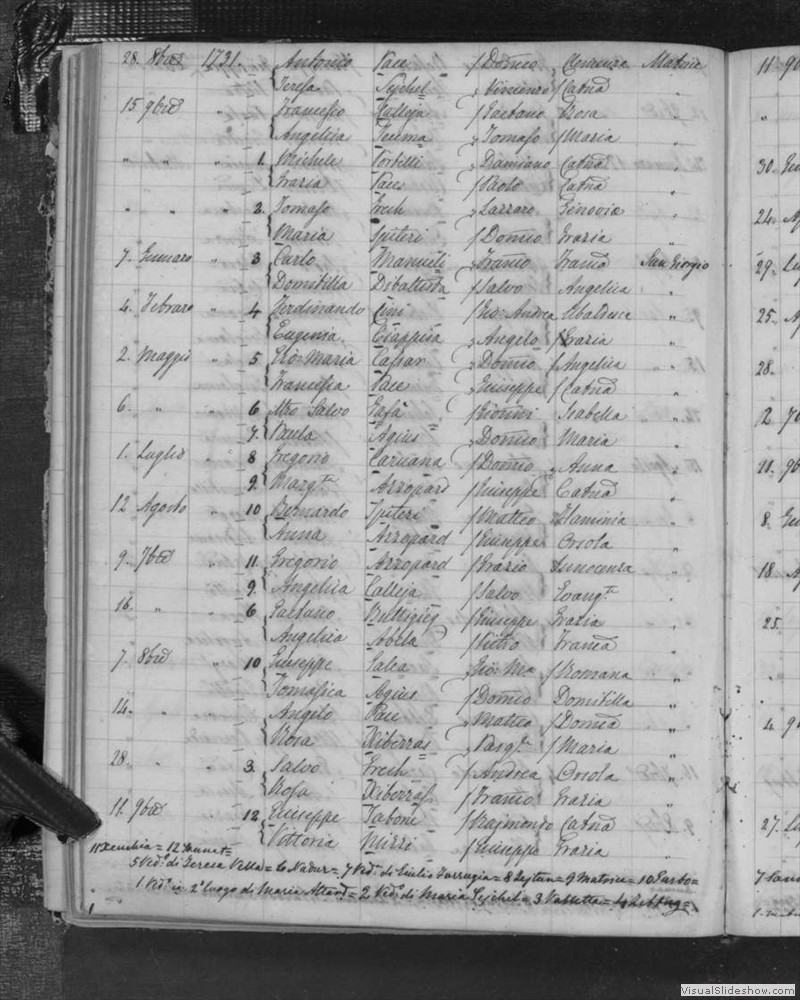 28. 8bre 1721. Antonio Pace / Domco Clemenza Matrice
Teresa Sejchel Vincenzo / Catna
15 9bre " Francesco Calleja / Gaetano Rosa "
Angelica Teuma Tomaso / Maria "
" " " 1. Michele Portelli Damiano Catna
Grazia Pace / Paolo Catna "
" " " 2. Tomaso Grech Lazzaro Ginovia "
Maria Spiteri / Domco Grazia "
7. Gennaro " 3 Carlo Manueli Franco Franca San Giorgio
Domitilla Dibattista / Salvo Angelica "
4. Febraro " 4 Ferdinando Cini / Gio: Andrea Ubaldesca "
Eugenia Ciappisa Angelo / Grazia "
2. Maggio " 5 Gio: Maria Cassar Domco / Angelica "
Francesca Pace Giuseppe / Catna "
6. " " 6 Mro Salvo Gafa' / Gionni Isabella "
7. Paula Agius Domco Maria "
1. Luglio " 8 Gregorio Caruana / Domco Anna "
9. Margta Azzopard / Giuseppe Catna "
12 Agosto " 10 Bernardo Spiteri / Matteo Flaminia "
Anna Azzopard / Giuseppe Orsola "
9. 7bre " 11. Gregorio Azzopard / Grazio Innocenza "
9. Angelica Calleja / Salvo Evangta "
16. " " 6. Gaetano Buttigieg / Giuseppe Grazia "
Angelica Abela / Pietro Franca "
7. 8bre " 10 Giuseppe Galea / Gio: Ma / Romana "
Tomasica Agius / Domco Domitilla "
14. " " Angelo Pace Matteo / Domca "
Rosa Xiberras Pasqle / Maria "
28 " " 3. Salvo Grech / Andrea Orsola "
Rosa Xiberras / Franco Grazia "
11. 9bre " 12 Giuseppe Taboni / Raimondo Catna "
Vittoria Mizzi / Giuseppe Grazia "
11 Xeuchia = 12 Munet =
5 Ved: di Teresa Vella = 6 Nadur = 7 Ved: di Giulio Farrugia = 8 Zejtun = 9 Matrice = 10 Garbo =
1 Vedo in 2o luogo di Maria Attard = 2 Vedo di Maria Sejchel = 3 Valletta = 4 Zebbug =
11 9
"
30.
24.
29.
25.
28.
12.
21.
8.
18.
25.
4.
27.
VisualSlideshow.com